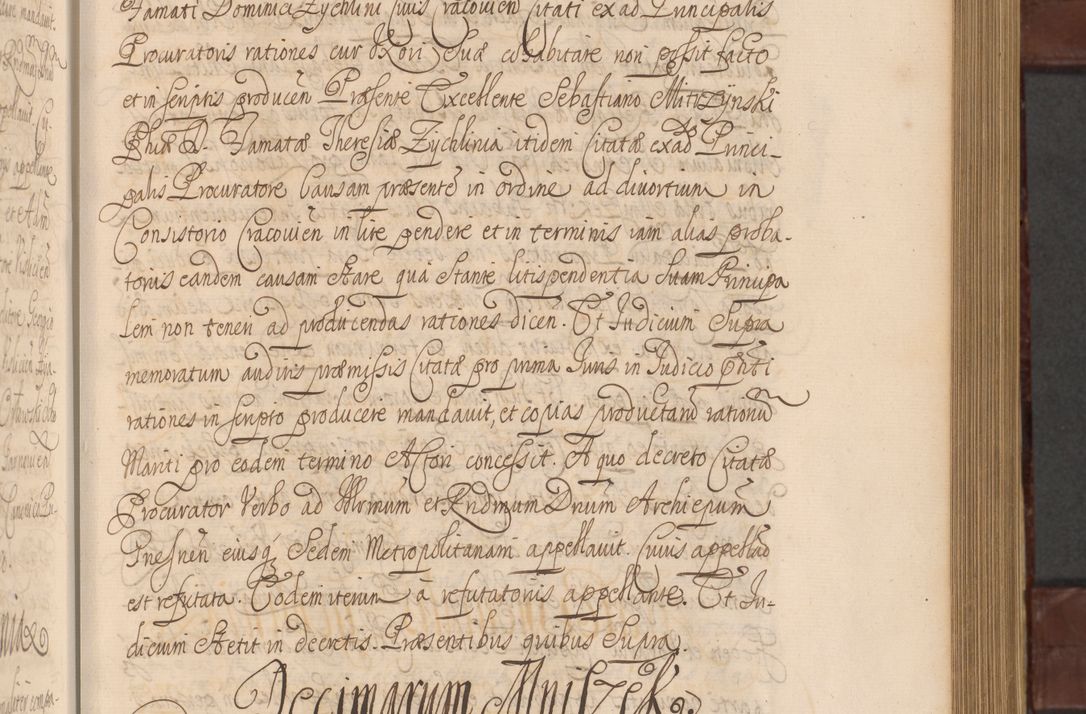 Famati Dominici Zychlini Civis Cracovien Citati ex ad Principalis
Procuratoris rationes cur Uxori Suæ cohabitare non possit facto
et in scriptis producen Præsente Excellente Sebastiano Miticzynski
Phiæ D. Famatæ Theresiæ Zychlinia itidem Citatæ ex ad Princi-
palis Procuratore Causam præsente in ordine ad divortium in
Consistorio Cracovien in lite pendere et in terminis iam alias proba-
toriis eandem causam stare qua stante litispendentia Suam Principa
lem non teneri ad producendas rationes dicen. Et Judicium Supra
memoratum auditis præmissis Citatæ pro prima Juris in Judicio pñti
rationes in scripto producere mandavit, et copias productarū rationū
Mariti pro eodem termino Actori concessit. A quo decreto Citatæ
Procurator Verbo ad Illrmum et Rndmum Dnum Archiepum
Gnesnen eiusq Sedem Metropolitanam appellavit. Cuius appellao
est refutata. Eodem iterum à refutatoriis appellante. Et Ju-
dicium stetit in decretis. Præsentibus quibus Supra
Decimarum Mniszek.